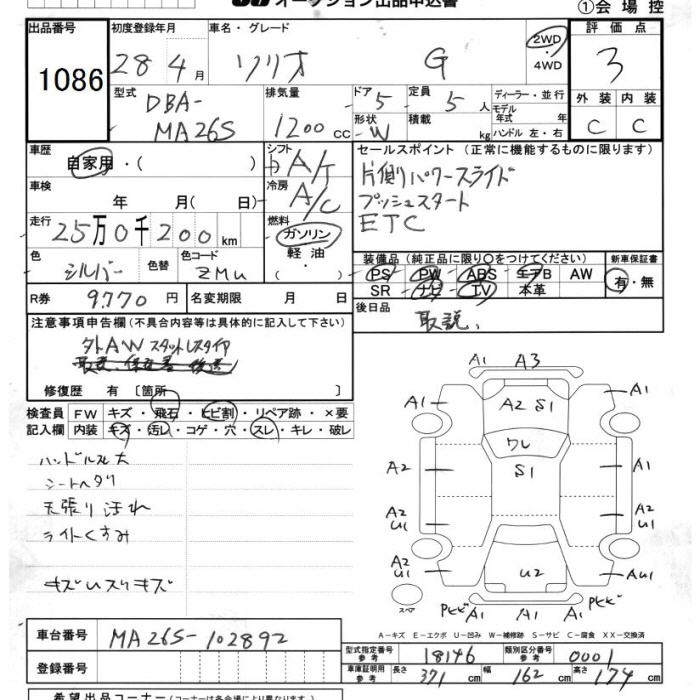 オークション出品申込書
①会場控
出品番号 1086
初度登録年月 28年4月
車名・グレード ソリオ G
2WD・4WD
評価点 3
型式 DBA-MA26S
排気量 1200cc
ドア 5
形状 W
定員 5人
積載 kg
ディーラー・並行
モデル年式 年
ハンドル 左・右
外装 C
内装 C
車歴 自家用・( )
シフト A/T
冷房 A/C
セールスポイント (正常に機能するものに限ります)
片側パワースライド
プッシュスタート
ETC
車検 年 月( 日)
走行 25万0千200km
燃料 ガソリン
軽油
・( )
色 シルバー
色替
色コード ZMU
装備品 (純正品に限り○をつけてください)
PS PW ABS エアB AW
SR ナビ TV 本革
新車保証書 有・無
R券 9,770円
名変期限 月 日
後日品 取説、
注意事項申告欄 (不具合内容等は具体的に記入して下さい)
外AWスタットレスタイヤ
修復歴 有 〔箇所
検査員記入欄
FW キズ・飛石・ヒビ割・リペア跡・×要
内装 キズ・汚レ・コゲ・穴・スレ・キレ・破レ
シートヘタリ
天張り汚れ
ライトくすみ
A1 A3
A1 A2 S1 A1
ワレ
A2 S1 A1
A2 U1 A2 U1
A2 U1 U2 AU1
スペア
Pヒビ A1 A1 A1 Pヒビ
A-キズ E-エクボ U-凹み W-補修跡 S-サビ C-腐食 XX-交換済
車台番号 MA26S-102892
登録番号
型式指定番号 参考 18146
類別区分番号 参考 0001
車庫証明用 参考 長さ 371cm 幅 162cm 高さ 174cm
希望出品コーナー (コーナーは各会場により異なります)